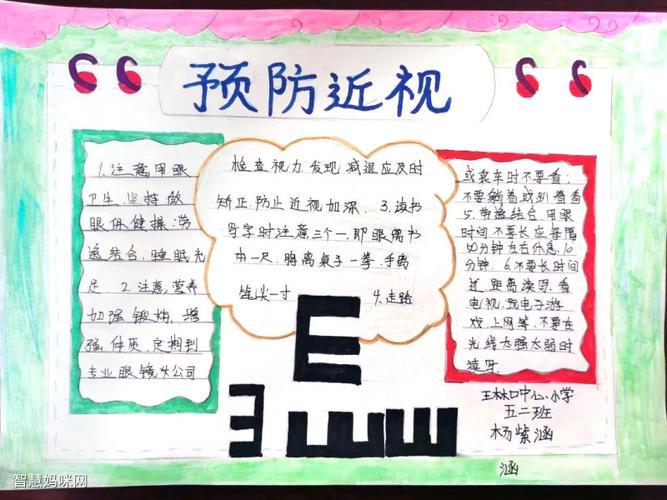 预防近视
1.注意用眼
卫生,坚持做
眼保健操,劳
逸结合,睡眠充
足 2.注意营养
加强锻炼,增
强体质,定期到
专业眼镜公司
检查视力.发现减退应及时
矫正.防止近视加深. 3.读书
写字时注意三个一,即眼离书
本一尺.胸离桌子一拳.手离
笔尖一寸 4.走路
或乘车时不要看;
不要躺着或趴着看
5.劳逸结合.用眼
时间不要长应每隔
50分钟左右休息10
分钟. 6.不要长时间
近距离读写.看
电视.玩电子游
戏.上网等.不要在
光线太强太弱时
读写
E
王林口中心小学
五二班
杨紫涵
涵
智慧妈咪网